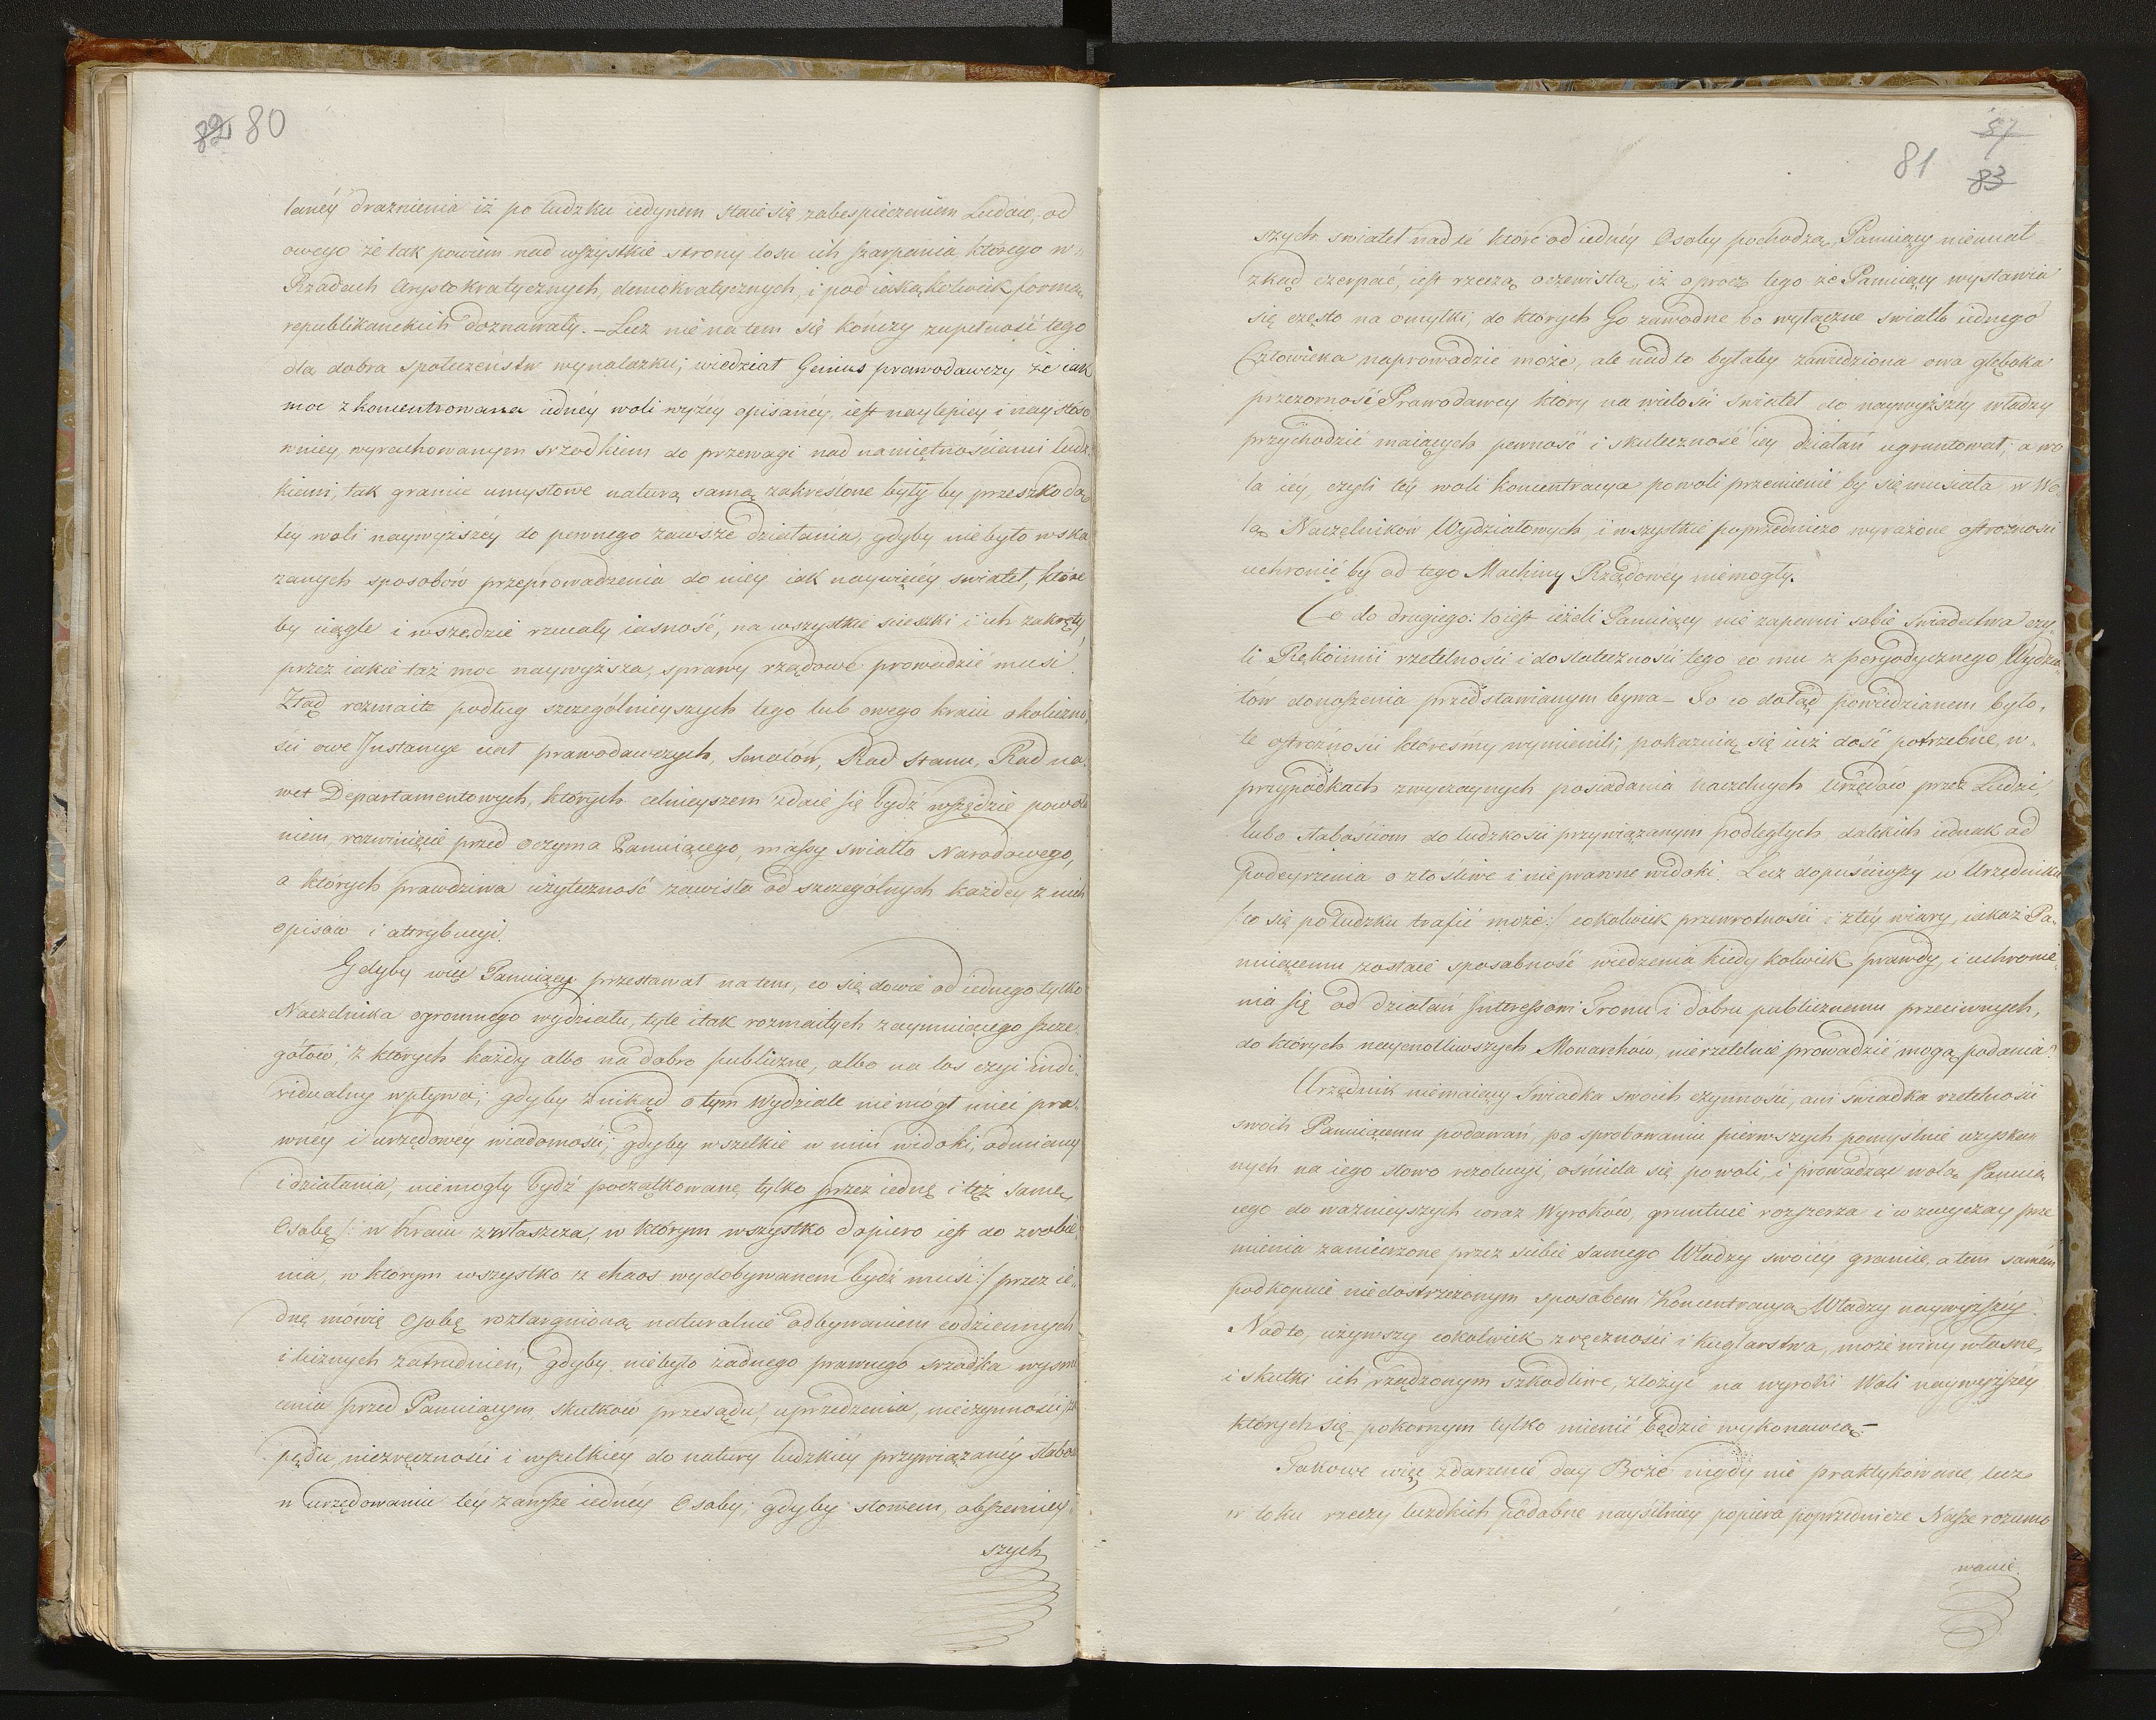 82 80
lanéy draznienia iż po ludzku iedynem staie się zabespieczeniem Ludów, od
owego że tak powiem nad wszystkie strony losu ich szarpania, którego w
Rządach Arystokratycznych, demokratycznych, i pod iakąkolwiek formą
republikanckich doznawały. – Lecz nie na tem się kończy zupełność tego
dla dobra społeczeństw wynalazku; wiedział Genius prawodawczy że iak
moc zkoncentrowana iednéy woli wyżéy opisanéy, iest naylepiey i naystóso
wniey wyrachowanym srzodkiem do przewagi nad namiętnościami ludz
kiemi, tak granice umysłowe naturą samą zakreślone były by przeszkodą
téy woli naywyższéy do pewnego zawsze działania, gdyby nie było wska
zanych sposobów przeprowadzenia do niey iak naywięcéy świateł, które
by ciągle i wszędzie rzucały iasność, na wszystkie scieszki i ich zakręty,
przez iakie taż moc naywyższa, sprawy rządowe prowadzić musi.
Ztąd rozmaite podług szczególnieyszych tego lub owego kraiu okoliczno
sci owe Instancye ciał prawodawczych, Senatów, Rad Stanu, Rad na
wet Departamentowych, których celnieyszem zdaie się bydź wszędzie powoła
niem, rozwinięcie przed oczyma Panuiącego, massy światła Narodowego,
a których prawdziwa użyteczność zawisła od szczególnych każdey z nich
opisów i attrybucyi.
Gdyby więc Panuiący przestawał na tem, co się dowie od iednego tylko
Naczelnika ogromnego wydziału, tyle i tak rozmaitych zaymuiącego szcze
gółów, z których każdy albo na dobro publiczne, albo na los czyi indi
widualny wpływa; gdyby znikąd o tym Wydziale niemógł mieć pra
wnéy i urzędowéy wiadomości; gdyby wszelkie w nim widoki, odmiany
i działania, niemogły bydź początkowane, tylko przez iednę i tęż samę
Osobę /: w Kraiu zwłaszcza, w którym wszystko dopiero iest do zrobie
nia, w którym wszystko z chaos wydobywanem bydź musi :/ przez ie
dnę mówię Osobę roztargnioną naturalnie odbywaniem codziennych
i licznych zatrudnień, gdyby nie było żadnego prawnego srzodka wyswie
cenia przed Panuiącym, skutków przesądu, uprzedzenia, nieczynności, za
pędu, niezręczności i wszelkiey do natury ludzkiéy przywiązanéy słabości
w urzędowaniu téy zawsze iednéy Osoby; gdyby słowem, obszerniey
szych
57
81 83
szych świateł nad te które od iednéy Osoby pochodzą, Panuiący niemiał
zkąd czerpać, iest rzeczą oczewistą, iż oprócz tego że Panuiący wystawia
się często na omyłki, do których Go zawodne bo wyłączne światło iednego
Człowieka naprowadzić może, ale nad to byłaby zawiedziona owa głęboka
przezorność Prawodawcy który na wielości świateł do naywyższéy władzy
przychodzić maiących pewność i skuteczność iéy działań ugruntował; a wo
la iéy, czyli téy woli koncentracya powoli przemienić by się musiała w Wo
lą Naczelników Wydziałowych, i wszystkie poprzedniczo wyrażone ostrożności
uchronić by od tego Machiny Rządowéy niemogły.
Co do drugiego: to iest ieżeli Panuiący nie zapewni sobie świadectwa czy
li Rękoimii rzetelności i dostateczności tego co mu z peryodycznego Wydzia
łów donoszenia przedstawianym bywa – To co dotąd powiedzianem było,
te ostrożności któreśmy wymienili, pokazuią się iuż dość potrzebne, w
przypadkach zwyczaynych posiadania naczelnych Urzędów przez Ludzi,
lubo słabościom do ludzkości przywiązanym podległych, dalekich iednak od
podeyrzenia o złośliwe i nieprawne widoki. Lecz dopuściwszy w Urzędniku
/: co się po ludzku trafić może :/ cokolwiek przewrotności i złéy wiary, iakaż Pa
nuiącemu zostaie sposobność wiedzenia kiedykolwiek prawdy, i uchronie
nia się od działań Interessom Tronu i dobru publicznemu przeciwnych,
do których naycnotliwszych Monarchów, nierzetelnie prowadzić mogą podania?
Urzędnik niemaiący Świadka swoich czynności, ani świadka rzetelności
swoich Panuiącemu podawań, po sprobowaniu pierwszych pomyślnie uzyska
nych na iego słowo rezolucyi, ośmiela się powoli, i prowadząc wolą Panuią
cego do ważnieyszych coraz Wyroków, gruntuie rozszerza i w zwyczay prze
mienia zamierzone przez siebie samego Władzy swoiéy granice, a tem samém
podkopuie niedostrzeżonym sposobem Koncentracyą Władzy naywyższéy.
Nadto, używszy cokolwiek zręczności i kuglarstwa, może winy własne,
i skutki ich rządzonym szkodliwe, złożyć na wyroki Woli naywyższéy
których się pokornym tylko mienić będzie wykonawcą. –
Takowe więc zdarzenie day Boże nigdy nie praktykowane, lecz
w toku rzeczy ludzkich podobne naysilniey popiera poprzednicze Nasze rozumo
wanie.